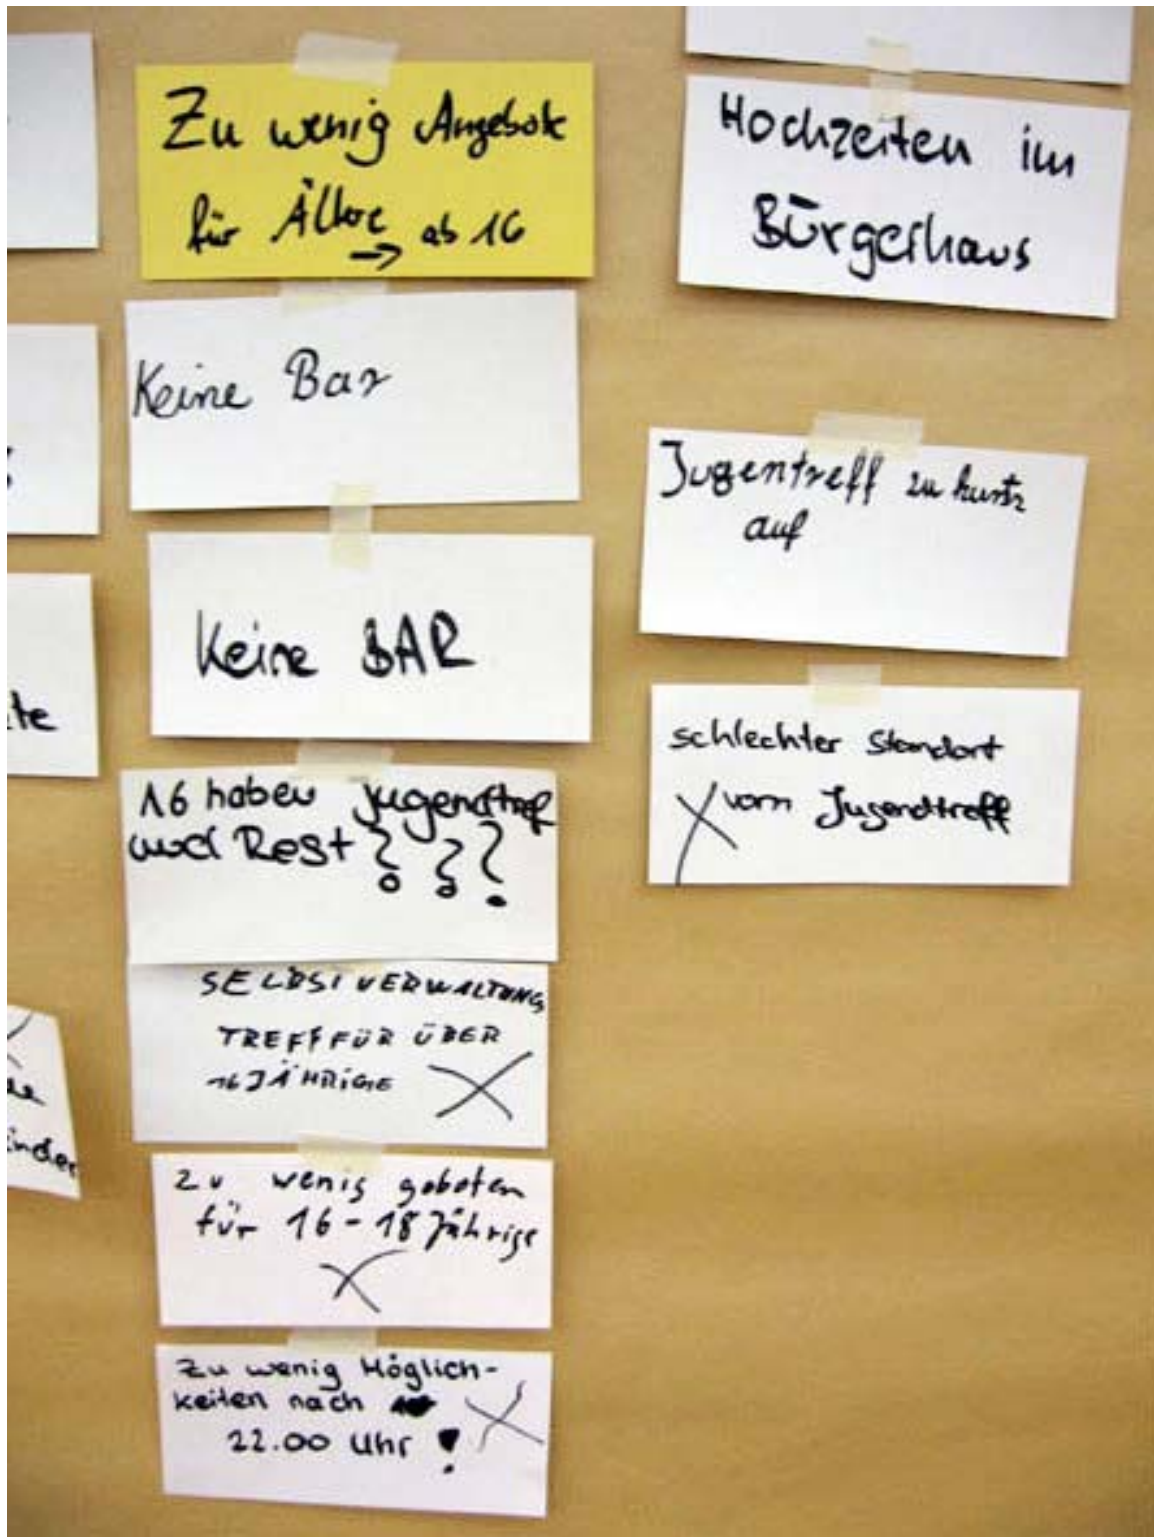 Zu wenig Angebote
für Ältere
→ ab 16
Keine Bar
Keine BAR
16 haben Jugendtref
und Rest ? ? ?
SELBSTVERWALTUNG
TREFF FÜR ÜBER
16 JÄHRIGE
zu wenig geboten
für 16-18 Jährige
Zu wenig Möglich-
keiten nach
22.00 Uhr !
Hochzeiten im
Bürgerhaus
Jugentreff zu kurtz
auf
schlechter Standort
vom Jugendtreff
te
inder